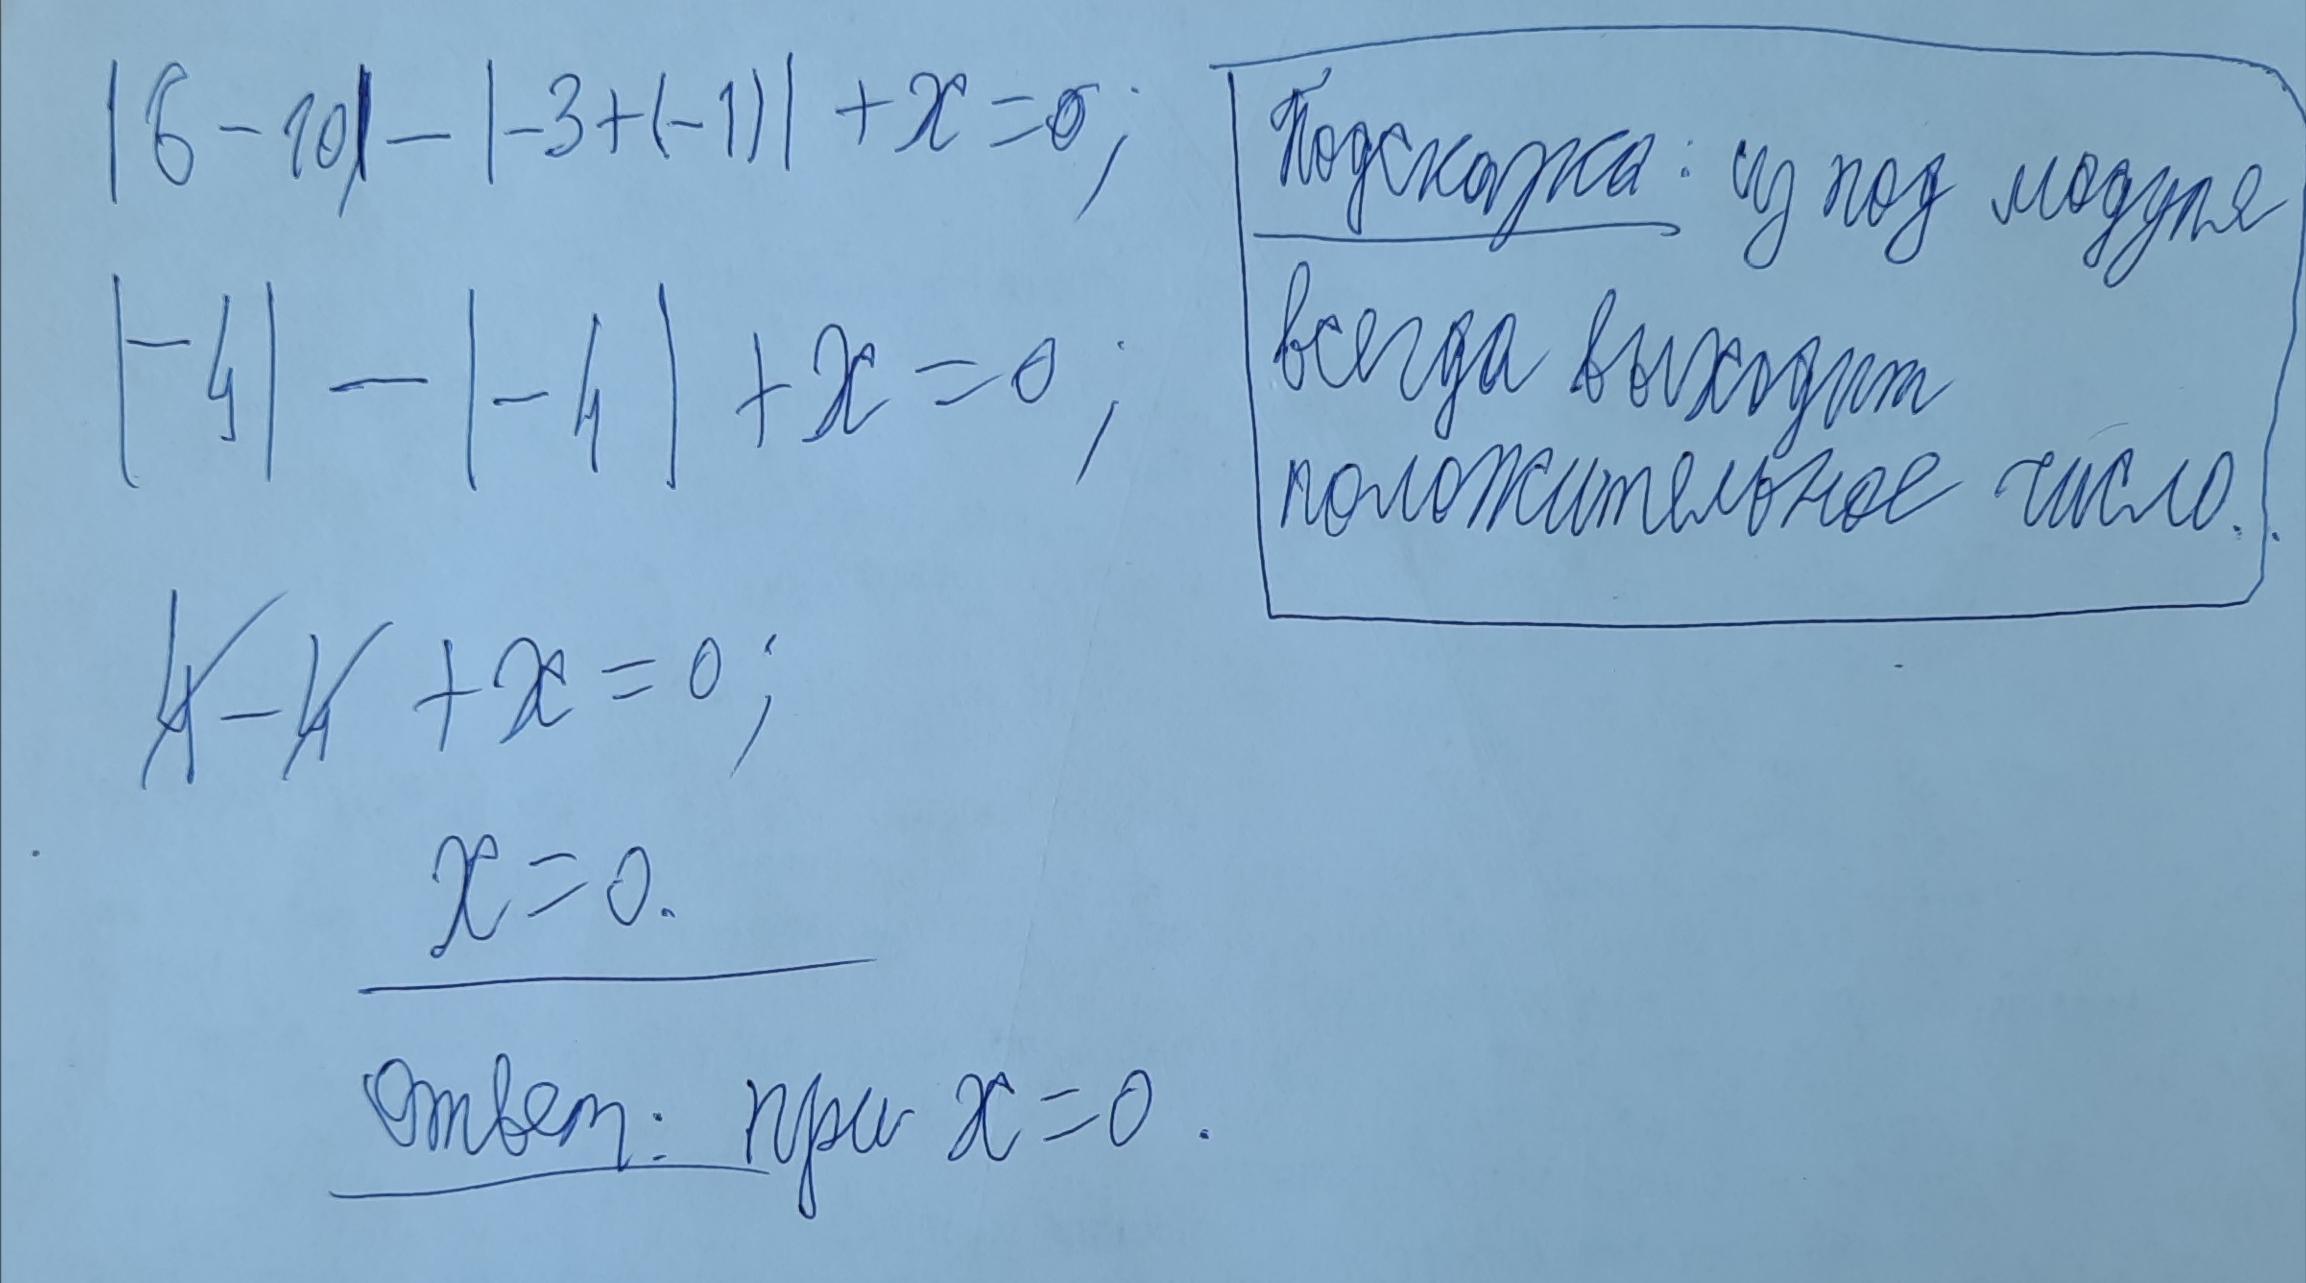 |6-10|-|-3+(-1)|+x=0;
|-4|-|-4|+x=0;
4-4+x=0;
x=0.
Ответ: при x=0.
Подсказка: из под модуля
всегда выходит
положительное число.